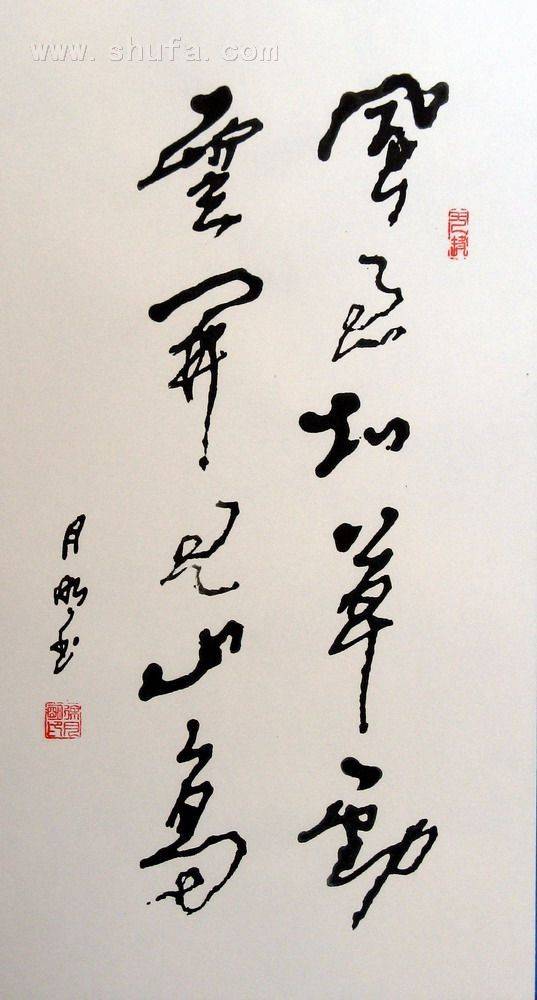 www.shufa.com
風過知草動
雲開見山高
月明书